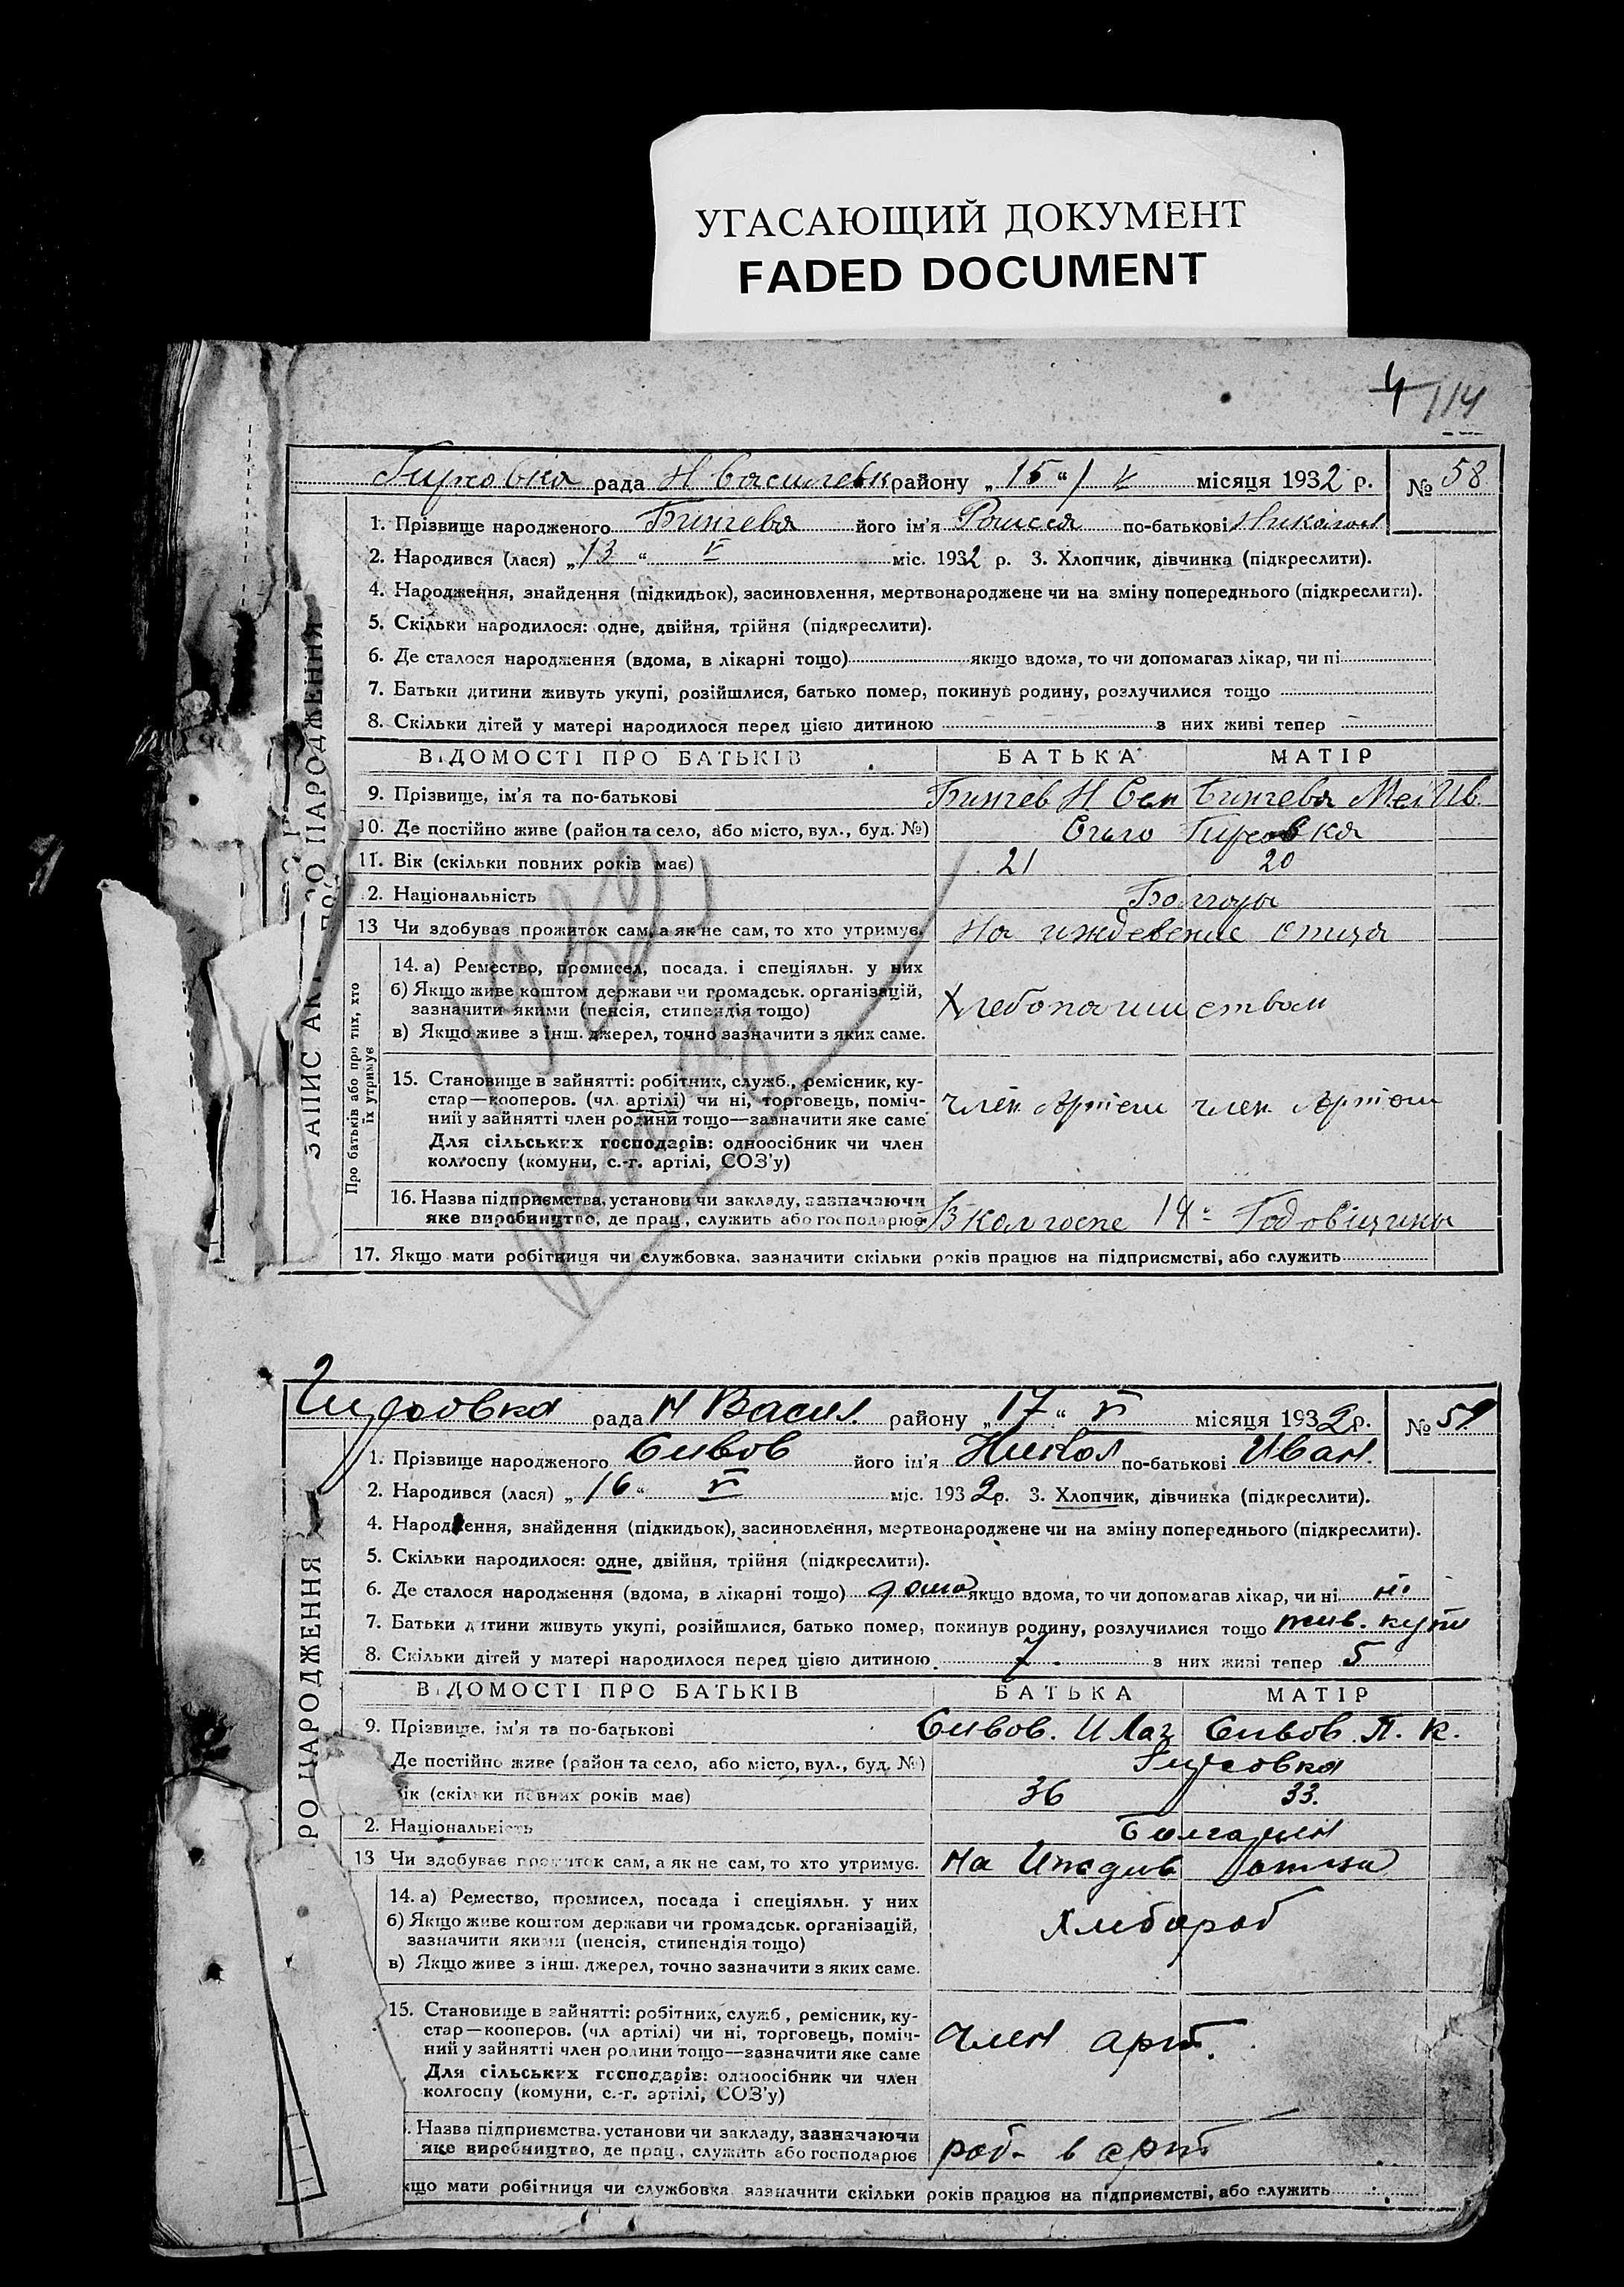 УГАСАЮЩИЙ ДОКУМЕНТ
FADED DOCUMENT
4 114
Гирсовка рада Н Василевк району „ 15 “ / V місяця 1932 р. № 58
1. Прізвище народженого Бинчева його ім'я по-батькові Николаи
2. Народився (лася) „ 13 “ V міс. 1932 р. 3. Хлопчик, дівчинка (підкреслити).
4. Народження, знайдення (підкидьок), засиновлення, мертвонароджене чи на зміну попереднього (підкреслити).
5. Скільки народилося: одне, двійня, трійня (підкреслити).
6. Де сталося народження (вдома, в лікарні тощо) якщо вдома, то чи допомагав лікар, чи ні
7. Батьки дитини живуть укупі, розійшлися, батько помер, покинув родину, розлучилися тощо
8. Скільки дітей у матері народилося перед цією дитиною з них живі тепер
ВІДОМОСТІ ПРО БАТЬКІВ БАТЬКА МАТІР
9. Прізвище, ім'я та по-батькові Бинчев Н Сем Бинчева Ив.
10. Де постійно живе (район та село, або місто, вул., буд. №) Село Гирсовка
11. Вік (скільки повних років має) 21 20
2. Національність Болгоры
13 Чи здобував прожиток сам, а як не сам, то хто утримує. На иждевение отца
14. а) Ремество, промисел, посада. і спеціяльн. у них
б) Якщо живе коштом держави чи громадськ. організацій,
зазначити якими (пенсія, стипендія тощо) Хлебопашиством
в) Якщо живе з інш. джерел, точно зазначити з яких саме.
15. Становище в зайнятті: робітник, служб., ремісник, ку-
стар—кооперов. (чл. артілі) чи ні, торговець, поміч- член Артели член Артели
ний у зайнятті член родини тощо—зазначити яке саме
Для сільських господарів: одноосібник чи член
колгоспу (комуни, с.-г. артілі, СОЗ'у)
16. Назва підприємства, установи чи закладу, зазначаючи
яке виробництво, де прац., служить або господарює В колгоспе 14 Годовщины
17. Якщо мати робітниця чи службовка, зазначити скільки років працює на підприємстві, або служить
ЗАПИС АК ПРО НАРОДЖЕННЯ
Про батьків або про тих, хто
їх утримує
1932
Гирсовка рада Н Васил. району „ 17 “ V місяця 1932 р. № 59
1. Прізвище народженого Сивов його ім'я Никол по-батькові Иван.
2. Народився (лася) „ 16 “ V міс. 1932 р. 3. Хлопчик, дівчинка (підкреслити).
4. Народження, знайдення (підкидьок), засиновлення, мертвонароджене чи на зміну попереднього (підкреслити).
5. Скільки народилося: одне, двійня, трійня (підкреслити).
6. Де сталося народження (вдома, в лікарні тощо) дома якщо вдома, то чи допомагав лікар, чи ні
7. Батьки дитини живуть укупі, розійшлися, батько помер, покинув родину, розлучилися тощо жив. купи
8. Скільки дітей у матері народилося перед цією дитиною 7 з них живі тепер 5
ВІДОМОСТІ ПРО БАТЬКІВ БАТЬКА МАТІР
9. Прізвище, ім'я та по-батькові Сивов. И Лаз Сивов П. К.
Де постійно живе (район та село, або місто, вул., буд. №) Гирсовка
Вік (скільки повних років має) 36 33.
2. Національність Болгарин
13 Чи здобуває прожиток сам, а як не сам, то хто утримує. На Иждив отца
14. а) Ремество, промисел, посада і спеціяльн. у них
б) Якщо живе коштом держави чи громадськ. організацій, Хлибороб
зазначити якими (пенсія, стипендія тощо)
в) Якщо живе з інш. джерел, точно зазначити з яких саме.
15. Становище в зайнятті: робітник, служб., ремісник, ку-
стар—кооперов. (чл артілі) чи ні, торговець, поміч- член арт.
ний у зайнятті член родини тощо—зазначити яке саме
Для сільських господарів: одноосібник чи член
колгоспу (комуни, с.-г. артілі, СОЗ'у)
Назва підприємства, установи чи закладу, зазначаючи
яке виробництво, де прац., служить або господарює роб- в арт
кщо мати робітниця чи службовка зазначити скільки років працює на підприємстві, або служить
РО НАРОДЖЕННЯ